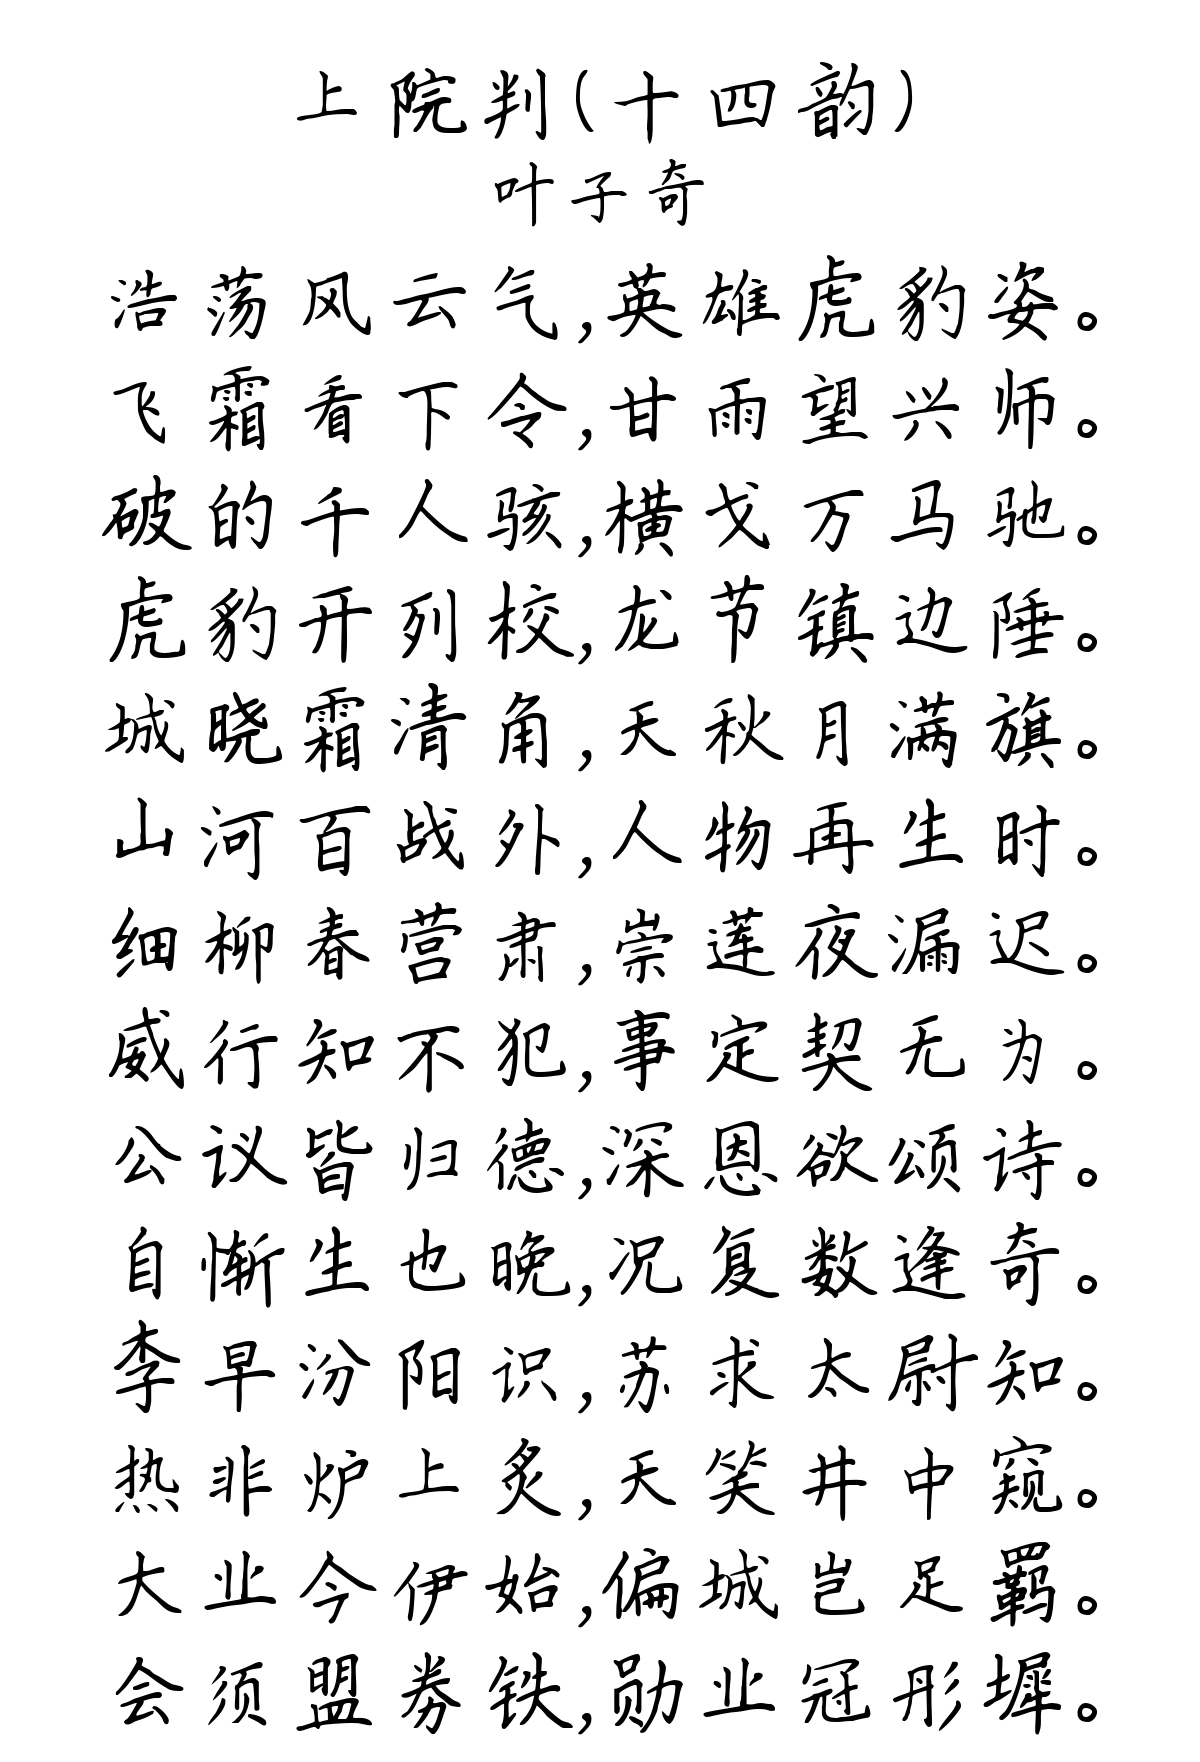 上院判(十四韵)
叶子奇
浩荡风云气,英雄虎豹姿。
飞霜看下令,甘雨望兴师。
破的千人骇,横戈万马驰。
虎豹开列校,龙节镇边陲。
城晓霜清角,天秋月满旗。
山河百战外,人物再生时。
细柳春营肃,崇莲夜漏迟。
威行知不犯,事定契无为。
公议皆归德,深恩欲颂诗。
自惭生也晚,况复数逢奇。
李早汾阳识,苏求太尉知。
热非炉上炙,天笑井中窥。
大业今伊始,偏城岂足羁。
会须盟券铁,勋业冠彤墀。